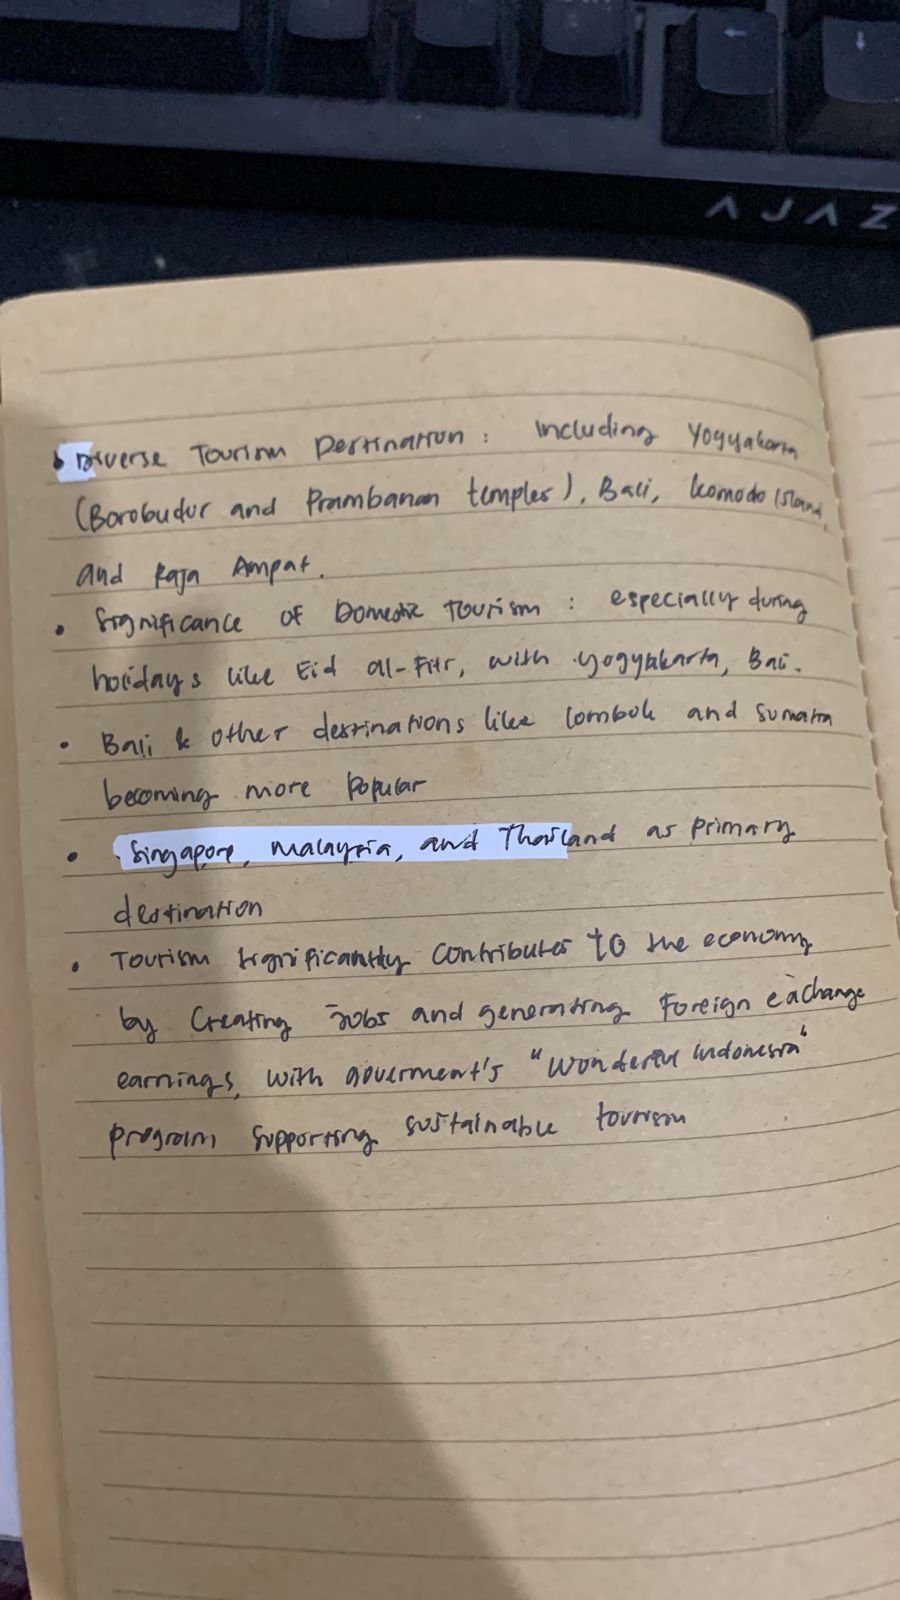 AJAZ
• Diverse Tourism Destination : Including Yogyakarta
(Borobudur and Prambanan temples), Bali, Komodo Island,
and Raja Ampat.
• Significance of Domestic Tourism : especially during
holidays like Eid al-Fitr, with yogyakarta, Bali.
• Bali & other destinations like lombok and Sumatra
becoming more popular
• Singapore, Malaysia, and Thailand as primary
destination
• Tourism significantly contributes to the economy
by Creating Jobs and generating Foreign exchange
earnings, with goverment's "Wonderful Indonesia"
program supporting sustainable tourism